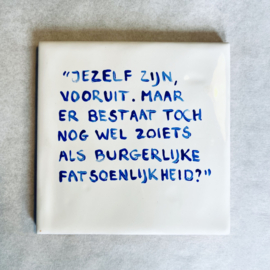 "JEZELF ZIJN,
VOORUIT. MAAR
ER BESTAAT TOCH
NOG WEL ZOIETS
ALS BURGERLIJKE
FATSOENLIJKHEID?"